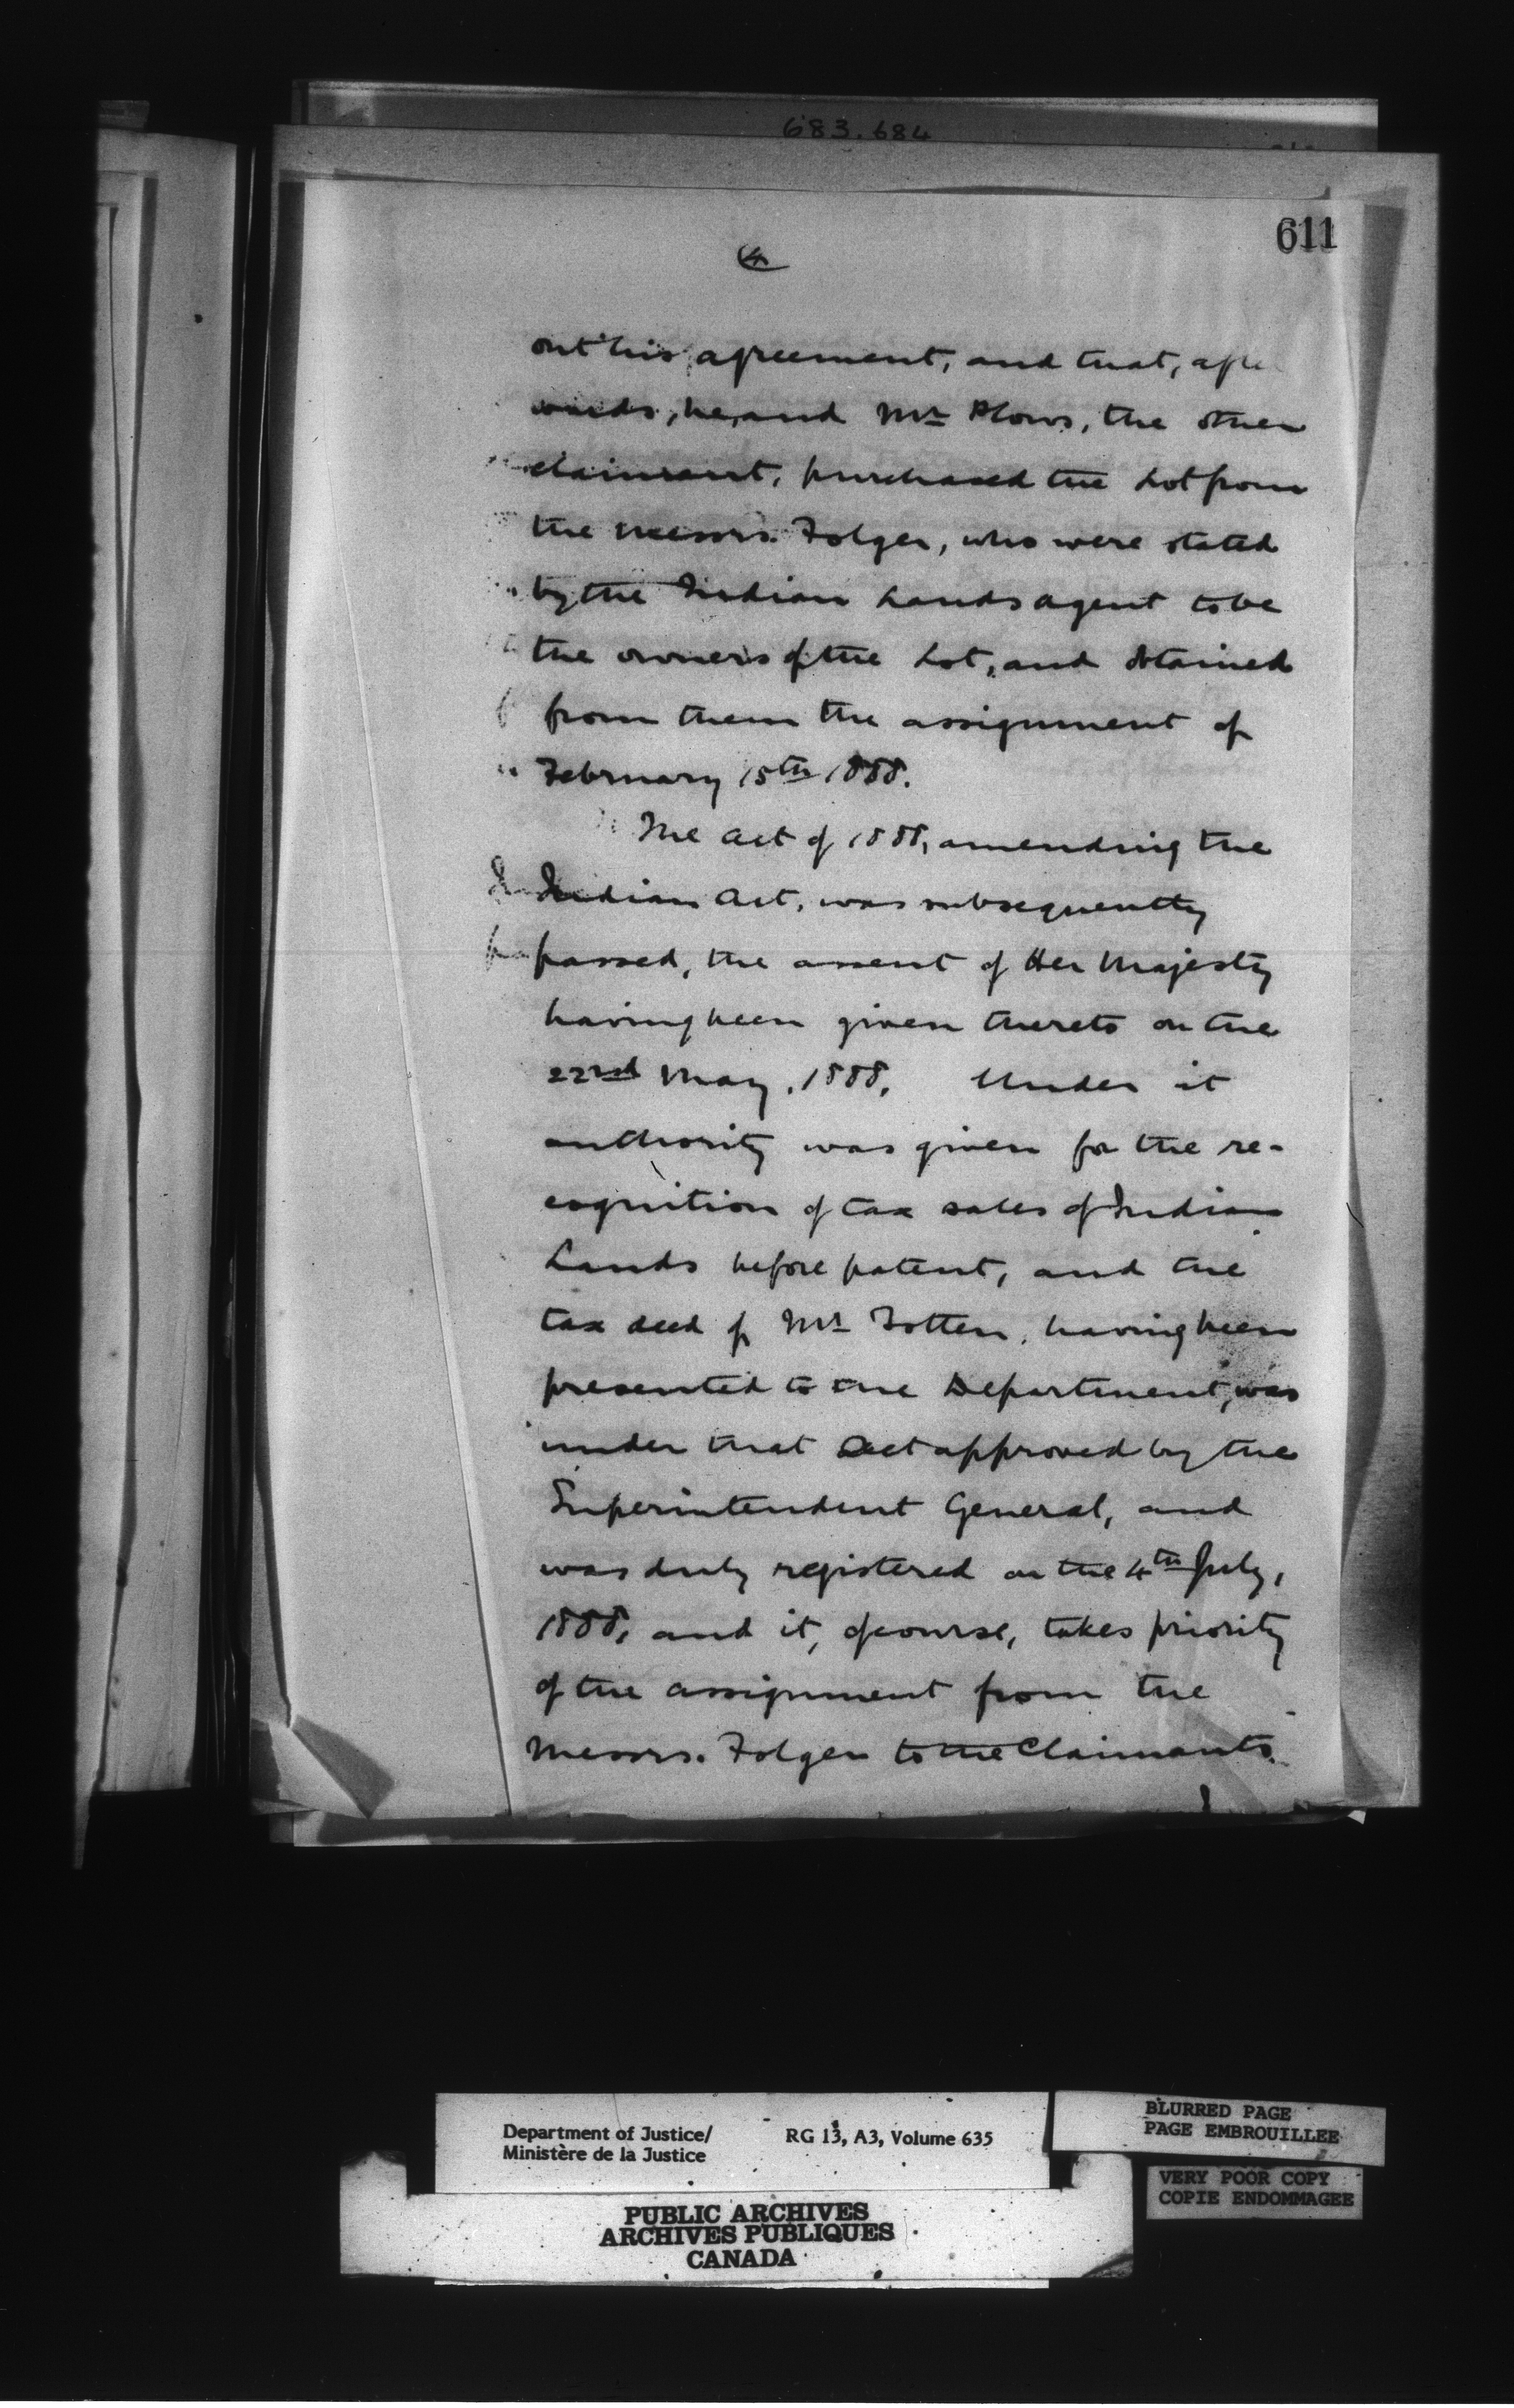 683.684
611
4
out his agreement, and that, afte
wards, he, and Mr Plows, the other
claimant, purchased the Lot from
the Messrs. Folger, who were stated
by the Indian Lands agent to be
the owners of the Lot, and obtained
from them the assignment of
February 15th 1888.
The Act of 1888, amending the
Indian Act, was subsequently
passed, the assent of Her Majesty
having been given thereto on the
22nd May, 1888. Under it
authority was given for the re-
cognition of tax sales of Indian
Lands before patent, and the
tax deed of Mr Totten, having been
presented to the Department, was
under that Act approved by the
Superintendent General, and
was duly registered on the 4th July,
1888, and it, of course, takes priority
of the assignment from the
Messrs. Folger to the Claimants.
Department of Justice/ RG 13, A3, Volume 635
Ministère de la Justice
BLURRED PAGE
PAGE EMBROUILLEE
VERY POOR COPY
COPIE ENDOMMAGEE
PUBLIC ARCHIVES
ARCHIVES PUBLIQUES
CANADA